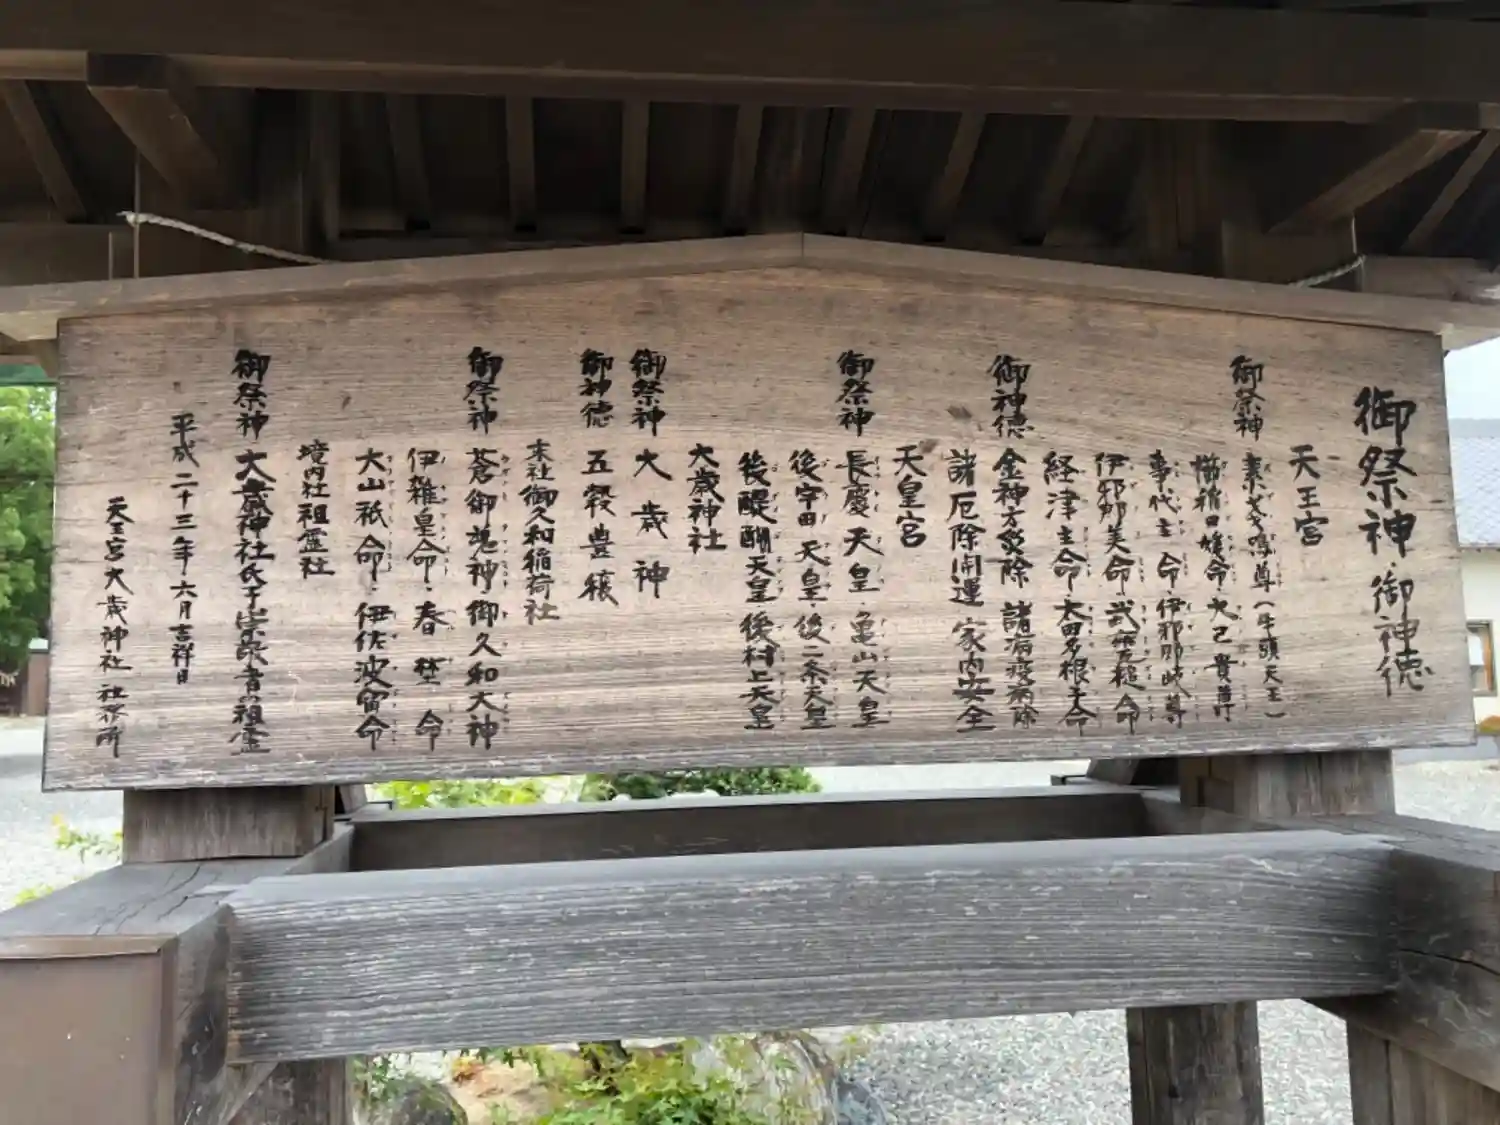 御祭神・御神徳
天王宮
御祭神 素戔嗚尊(牛頭天王)
櫛稲田媛命・大己貴尊
事代主命・伊邪那岐尊
伊邪那美命・武甕槌命
経津主命・大田多根子命
御神徳 金神方災除 諸病疫病除
諸厄除開運 家内安全
天皇宮
御祭神 長慶天皇・亀山天皇
後宇田天皇・後二条天皇
後醍醐天皇・後村上天皇
大歳神社
御祭神 大歳神
御神徳 五穀豊穣
末社 御久和稲荷社
御祭神 蒼御魂神・御久和大神
伊雑皇命・春埜命
大山祇命・伊佐波留命
境内社 祖霊社
御祭神 大歳神社氏子崇敬者の祖霊
平成二十三年六月吉祥日
天王宮大歳神社 社務所